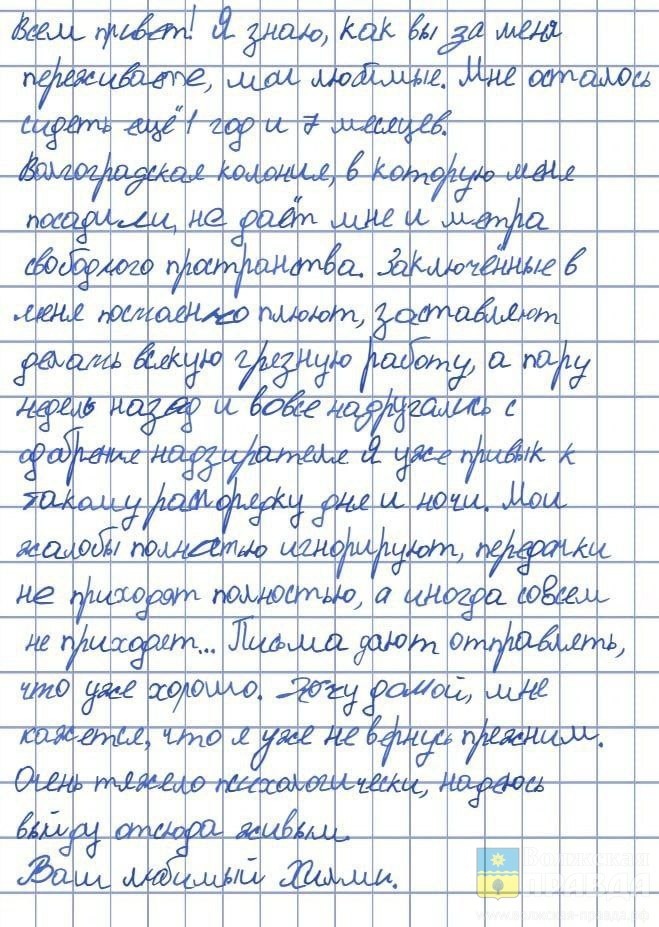 Всем привет! Я знаю, как вы за меня
переживаете, мои любимые. Мне осталось
сидеть ещё 1 год и 7 месяцев.
Волгоградская колония, в которую меня
посадили, не даёт мне и метра
свободного пространства. Заключённые в
меня постоенно плюют, заставляют
делать всякую грезную работу, а пару
недель назад и вовсе надругались с
одабрения надзирателя Я уже привык к
такому распорядку дня и ночи. Мои
жалобы полностью игнорируют, передачки
не приходят полностью, а иногда совсем
не приходет... Письма дают отправлять,
что уже хорошо. Хочу домой, мне
кажется, что я уже не вернусь прежним.
Очень тяжело психологически, надеюсь
выйду отсюда живым
Ваш любимый Хилми.
Волжская
ПРАВДА
www.волжская-правда.рф